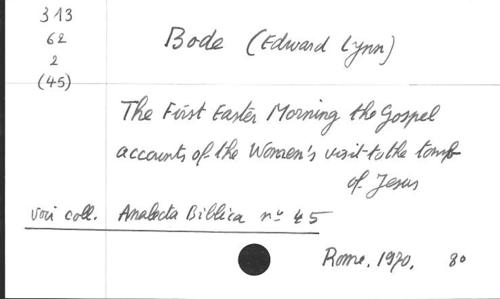 313
62
2
(45)
Bode (Edward Lynn)
The First Easter Morning the Gospel
accounts of the Women's visit to the tomb
of Jesus
voir coll. Analecta Biblica nº 45
Rome. 1970. 8º